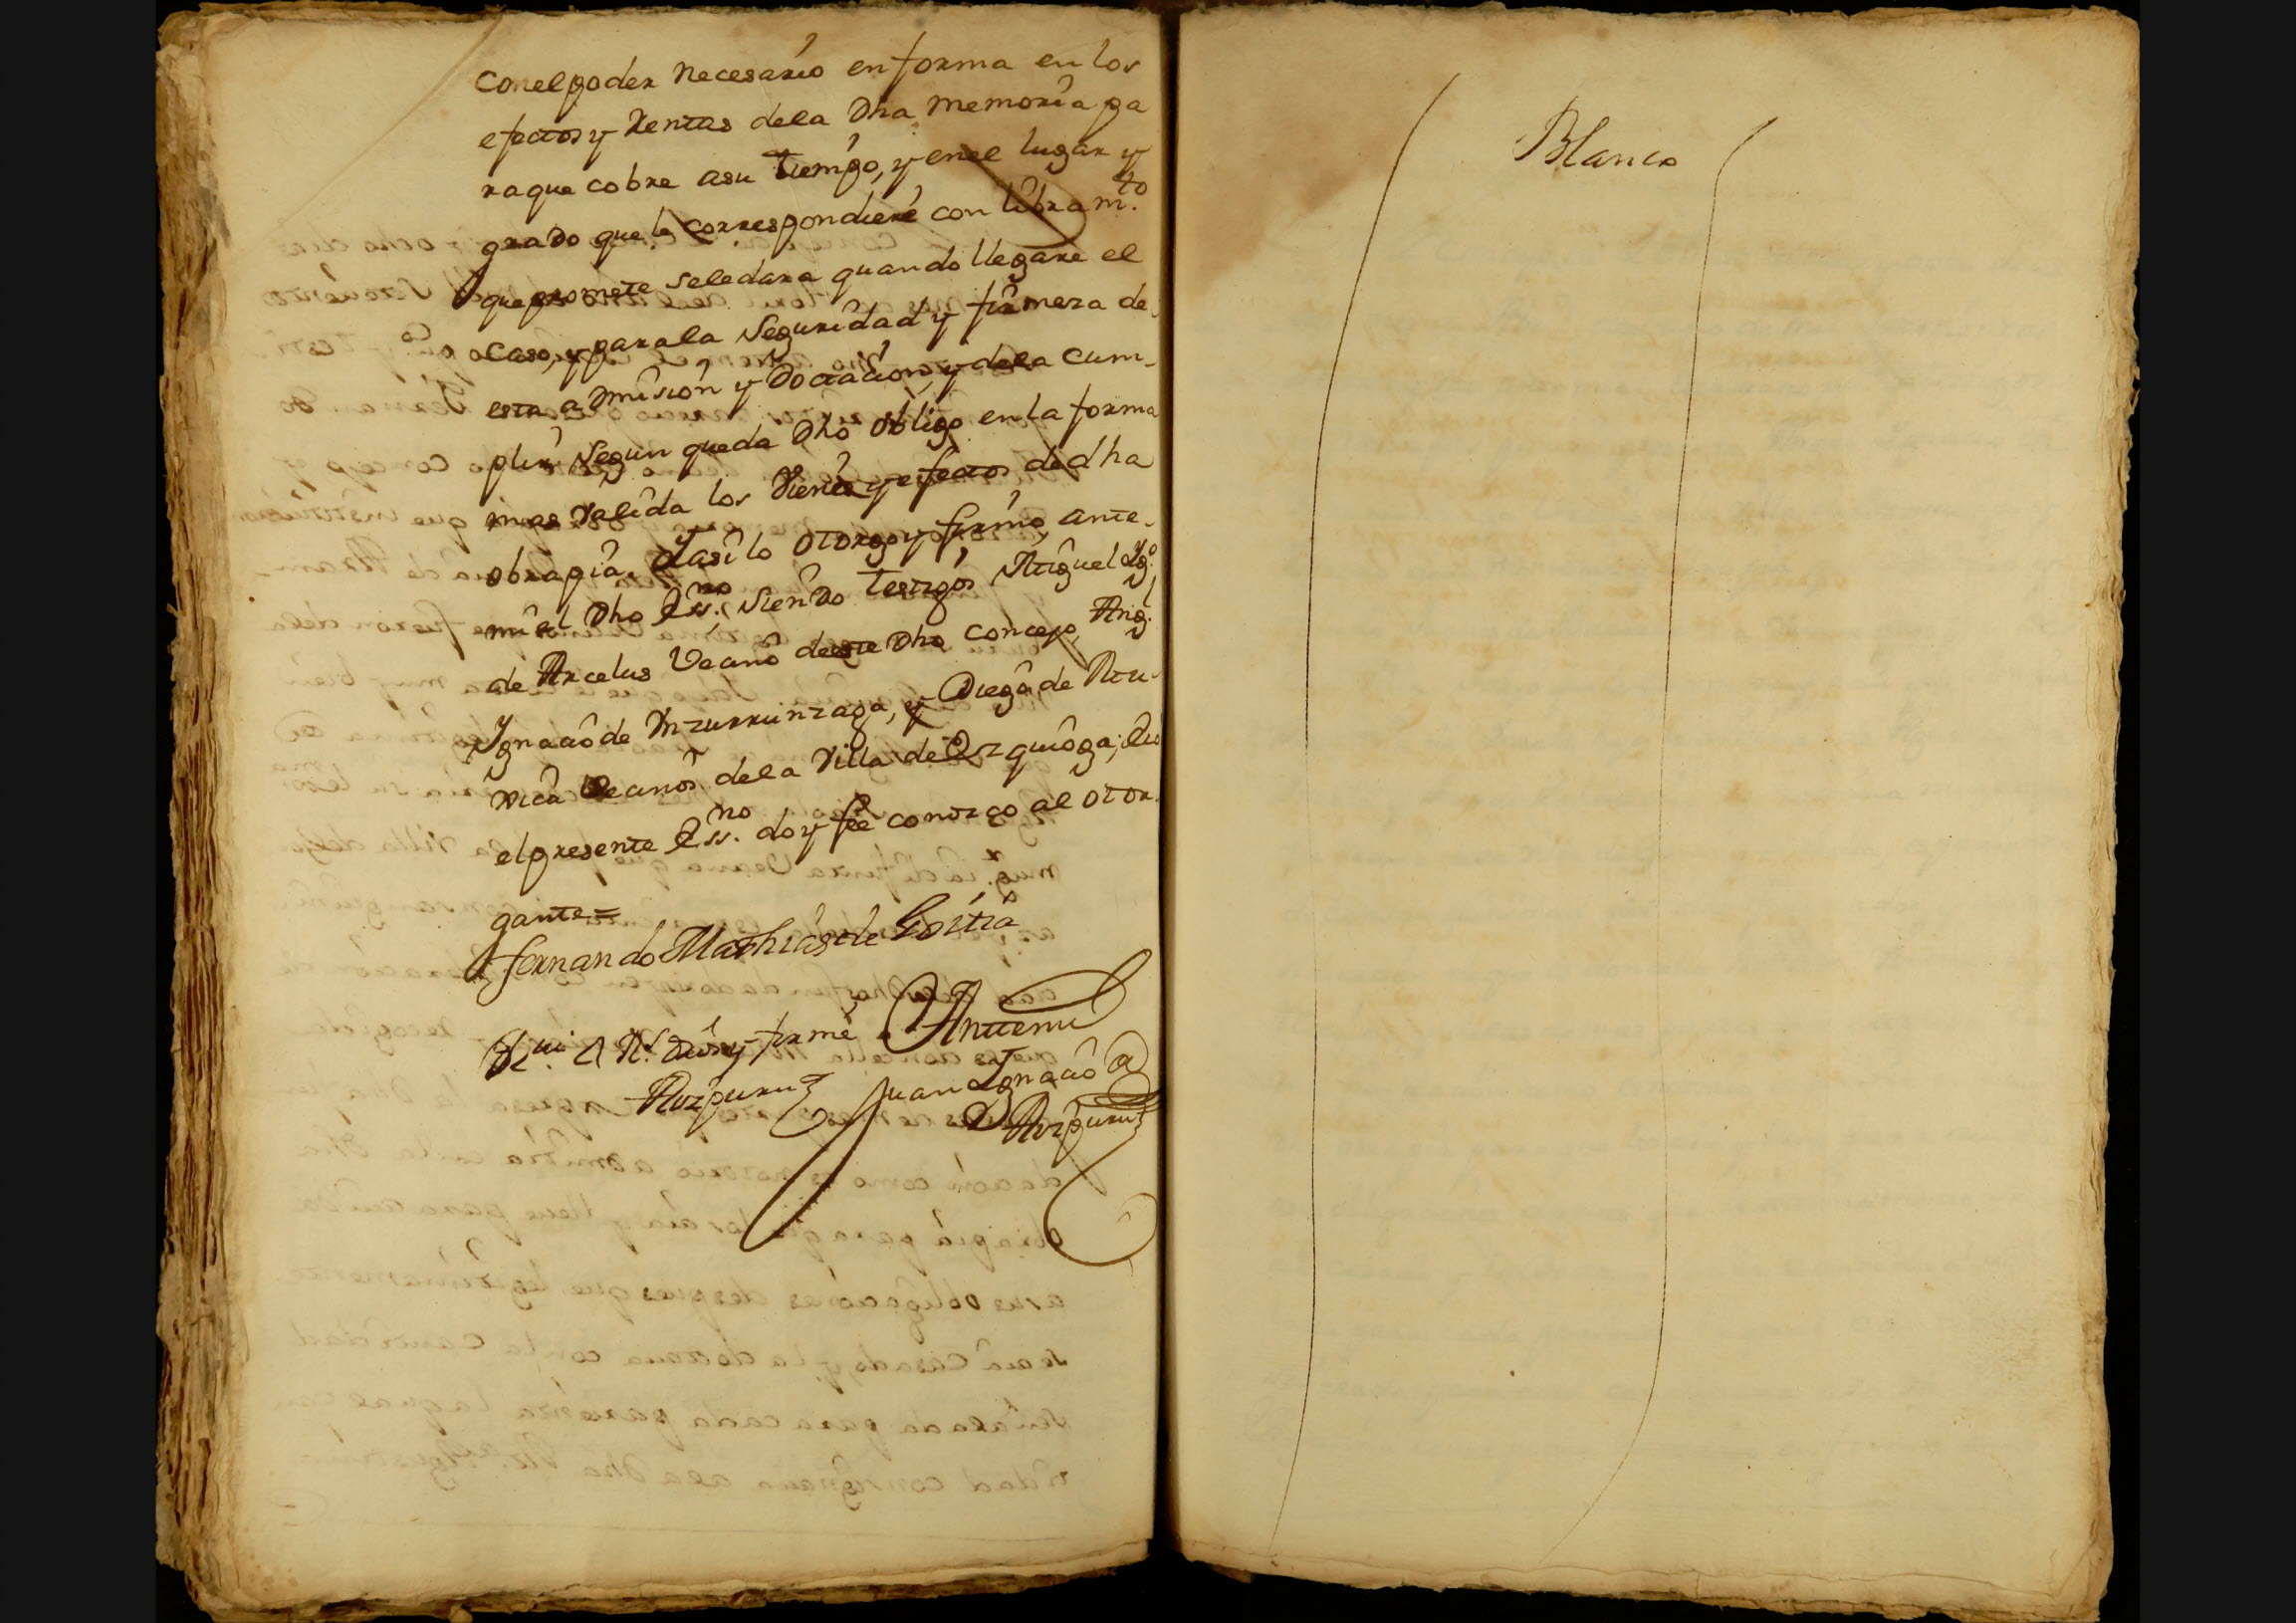 Con el poder necesario en forma en los
efectos y Rentas de la Dha memoria pa
ra que cobre a su tiempo, y en el lugar y
grado que le correspondiere con libram.to
que promete se le dara quando llegare el
caso, y para la seguridad y firmeza de
esta admision y Dotacion, y de la cum-
plir segun queda Dho obligo en la forma
mas valida los Vienes y efectos de dha
obra pia. Y asi lo otorgo y firmo, ante
mi el Dho Ess.no siendo testigos Miguel Yg.o
de Arcelus Vecino de este Dho Concejo, Ang.l
Ygnacio de Ynzurrunzaga, y Diego de Mu-
xica Vecinos de la Villa de Ezquioga; Eio
el presente Ess.no doy fee conozco al otor
gante =
fernando Mathias de Goitia
R.ui A R.s dios y firme
Aozpuru
Antemi
Juan Ygnacio
Aozpuru
Blanco